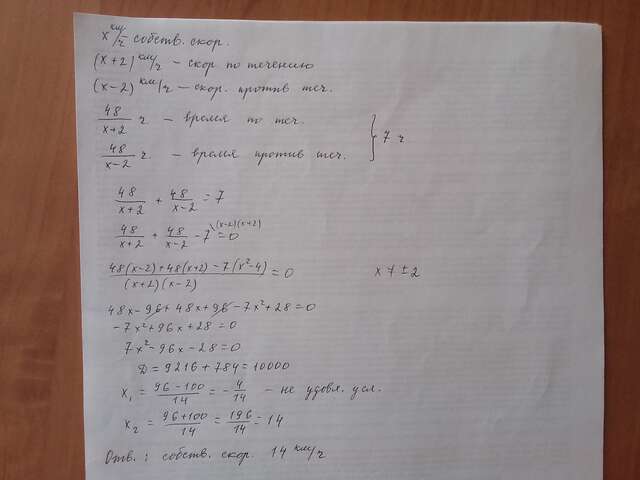 x км/ч собств. скор.
(x+2) км/ч – скор. по течению
(x-2) км/ч – скор. против теч.
48/(x+2) ч – время по теч.
48/(x-2) ч – время против теч. } 7 ч
48/(x+2) + 48/(x-2) = 7
48/(x+2) + 48/(x-2) - 7 = 0 (x-2)(x+2)
(48(x-2)+48(x+2)-7(x²-4))/((x+2)(x-2)) = 0 x ≠ ±2
48x-96+48x+96-7x²+28=0
-7x²+96x+28=0
7x²-96x-28=0
D = 9216 + 784 = 10000
x₁ = (96-100)/14 = -4/14 – не удовл. усл.
x₂ = (96+100)/14 = 196/14 = 14
Отв.: собств. скор. 14 км/ч